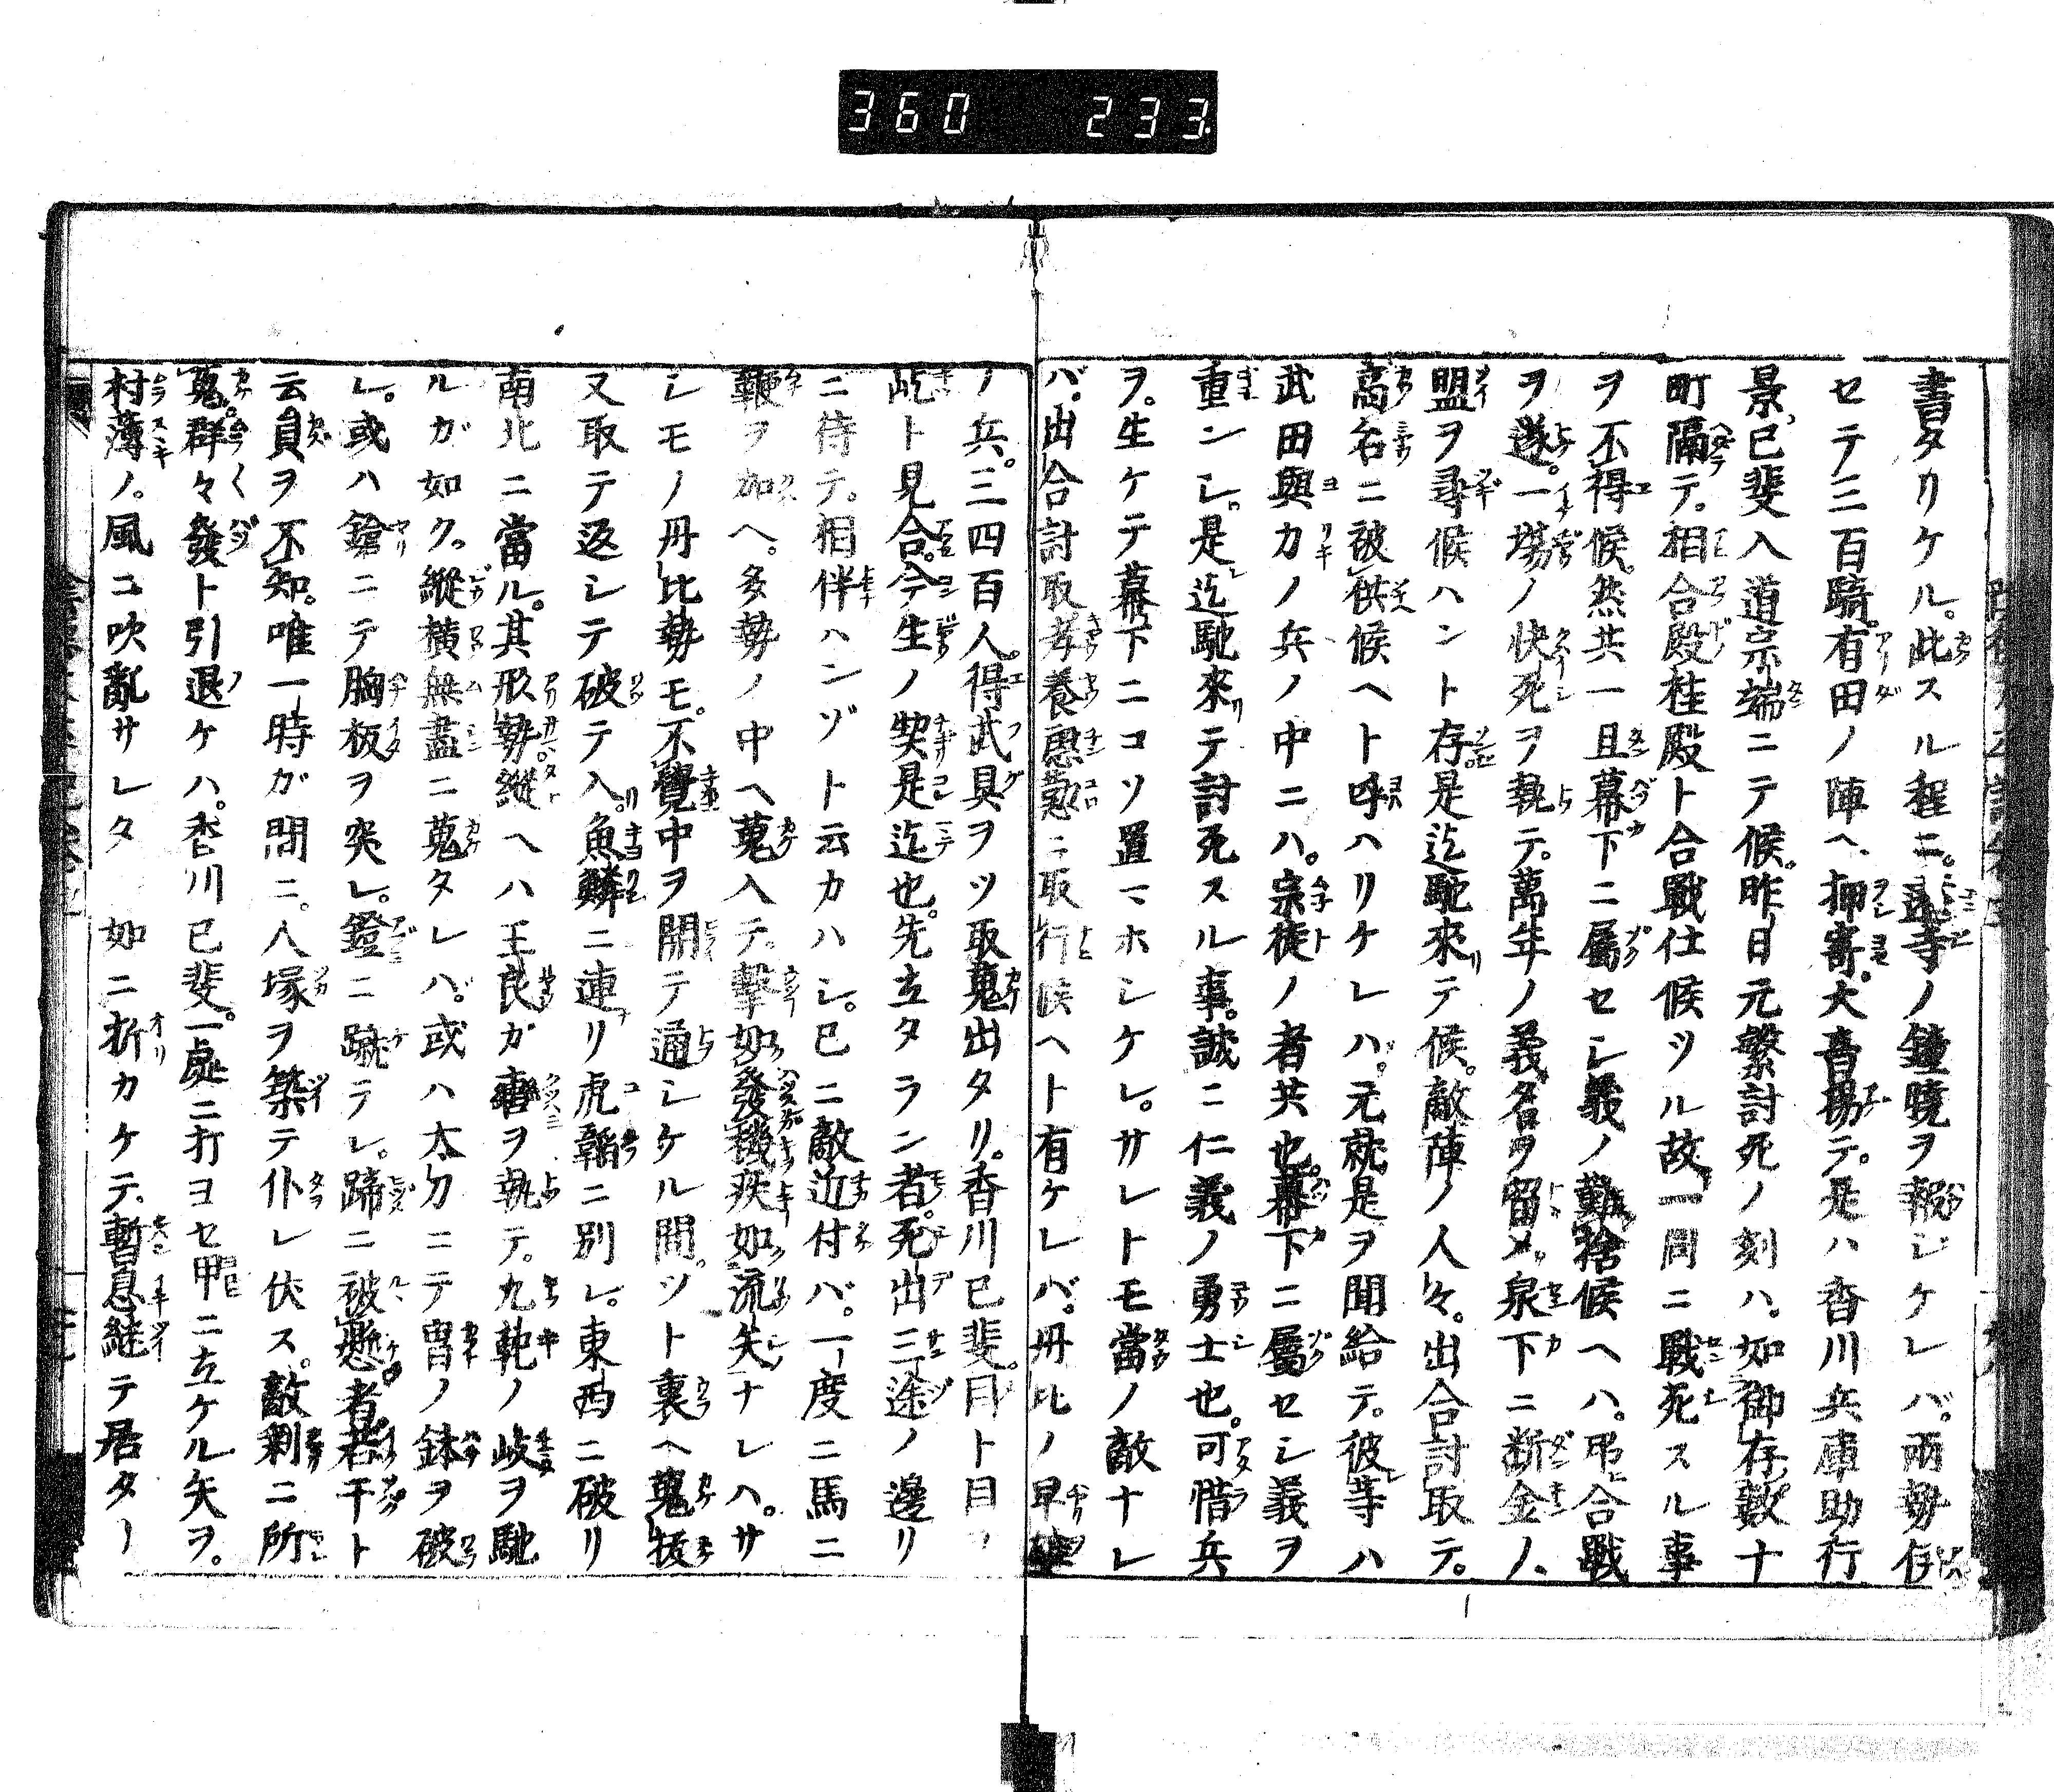 360 233
書タリケル。此スル程ニ。遠寺ノ鐘曉ヲ報ジケレバ。兩勢併
セテ三百騎。有田ノ陣ヘ押寄。大音揚テ。是ハ香川兵庫助行
景、已斐入道宗端ニテ候。昨日元繁討死ノ刻ハ。如御存數十
町隔テ。相合殿桂殿ト合戰仕候ツル故。一同ニ戰死スル事
ヲ不得候。然共一旦幕下ニ屬セシ義ノ難捨候ヘハ。弔合戰
ヲ遂。一塲ノ快死ヲ執テ。萬年ノ義名ヲ留メ。泉下ニ断金ノ
盟ヲ尋候ハント存。是迄馳來テ候。敵陣ノ人々。出合討取テ。
高名ニ被供候ヘト呼ハリケレハ。元就是ヲ聞給テ。彼等ハ
武田與力ノ兵ノ中ニハ。宗徒ノ者共也。幕下ニ屬セシ義ヲ
重ンシ。是迄馳來テ討死スル事。誠ニ仁義ノ勇士也。可惜兵
ヲ。生ケテ幕下ニコソ置マホシケレ。サレトモ當ノ敵ナレ
バ。出合討取孝養懇懃ニ取行候ヘト有ケレバ。丹比ノ早
ノ兵。三四百人。得武具ヲツ取蒐出タリ。香川已斐。目ト目ヲ
屹ト見合。今生ノ契是迄也。先立タラン者。死出三途ノ邊リ
ニ待テ。相伴ハンゾト云カハシ。已ニ敵近付バ。一度ニ馬ニ
鞭ヲ加ヘ。多勢ノ中ヘ蒐入テ。擊如發機疾如流矢ナレハ。サ
シモノ丹比勢モ。不覺中ヲ開テ通シケル間。ツト裏ヘ蒐拔
又取テ返シテ破テ入。魚鱗ニ連リ虎韜ニ別レ。東西ニ破リ
南北ニ當ル。其形勢縱ヘハ王良ガ轡ヲ執テ。九軌ノ岐ヲ馳
ルガ如ク。縱橫無盡ニ蒐タレハ。或ハ太刀ニテ冑ノ鉢ヲ破
レ。或ハ鎗ニテ胸板ヲ突レ。鐙ニ蹴テレ。蹄ニ被懸者若干ト
云員ヲ不知。唯一時ガ間ニ。人塚ヲ築テ仆レ伏ス。敵剩ニ所
蒐。群々發ト引退ケハ。香川已斐。一處ニ打ヨセ甲ニ立ケル矢ヲ。
村薄ノ。風ニ吹亂サレタ 如ニ折カケテ。暫息継テ居タ